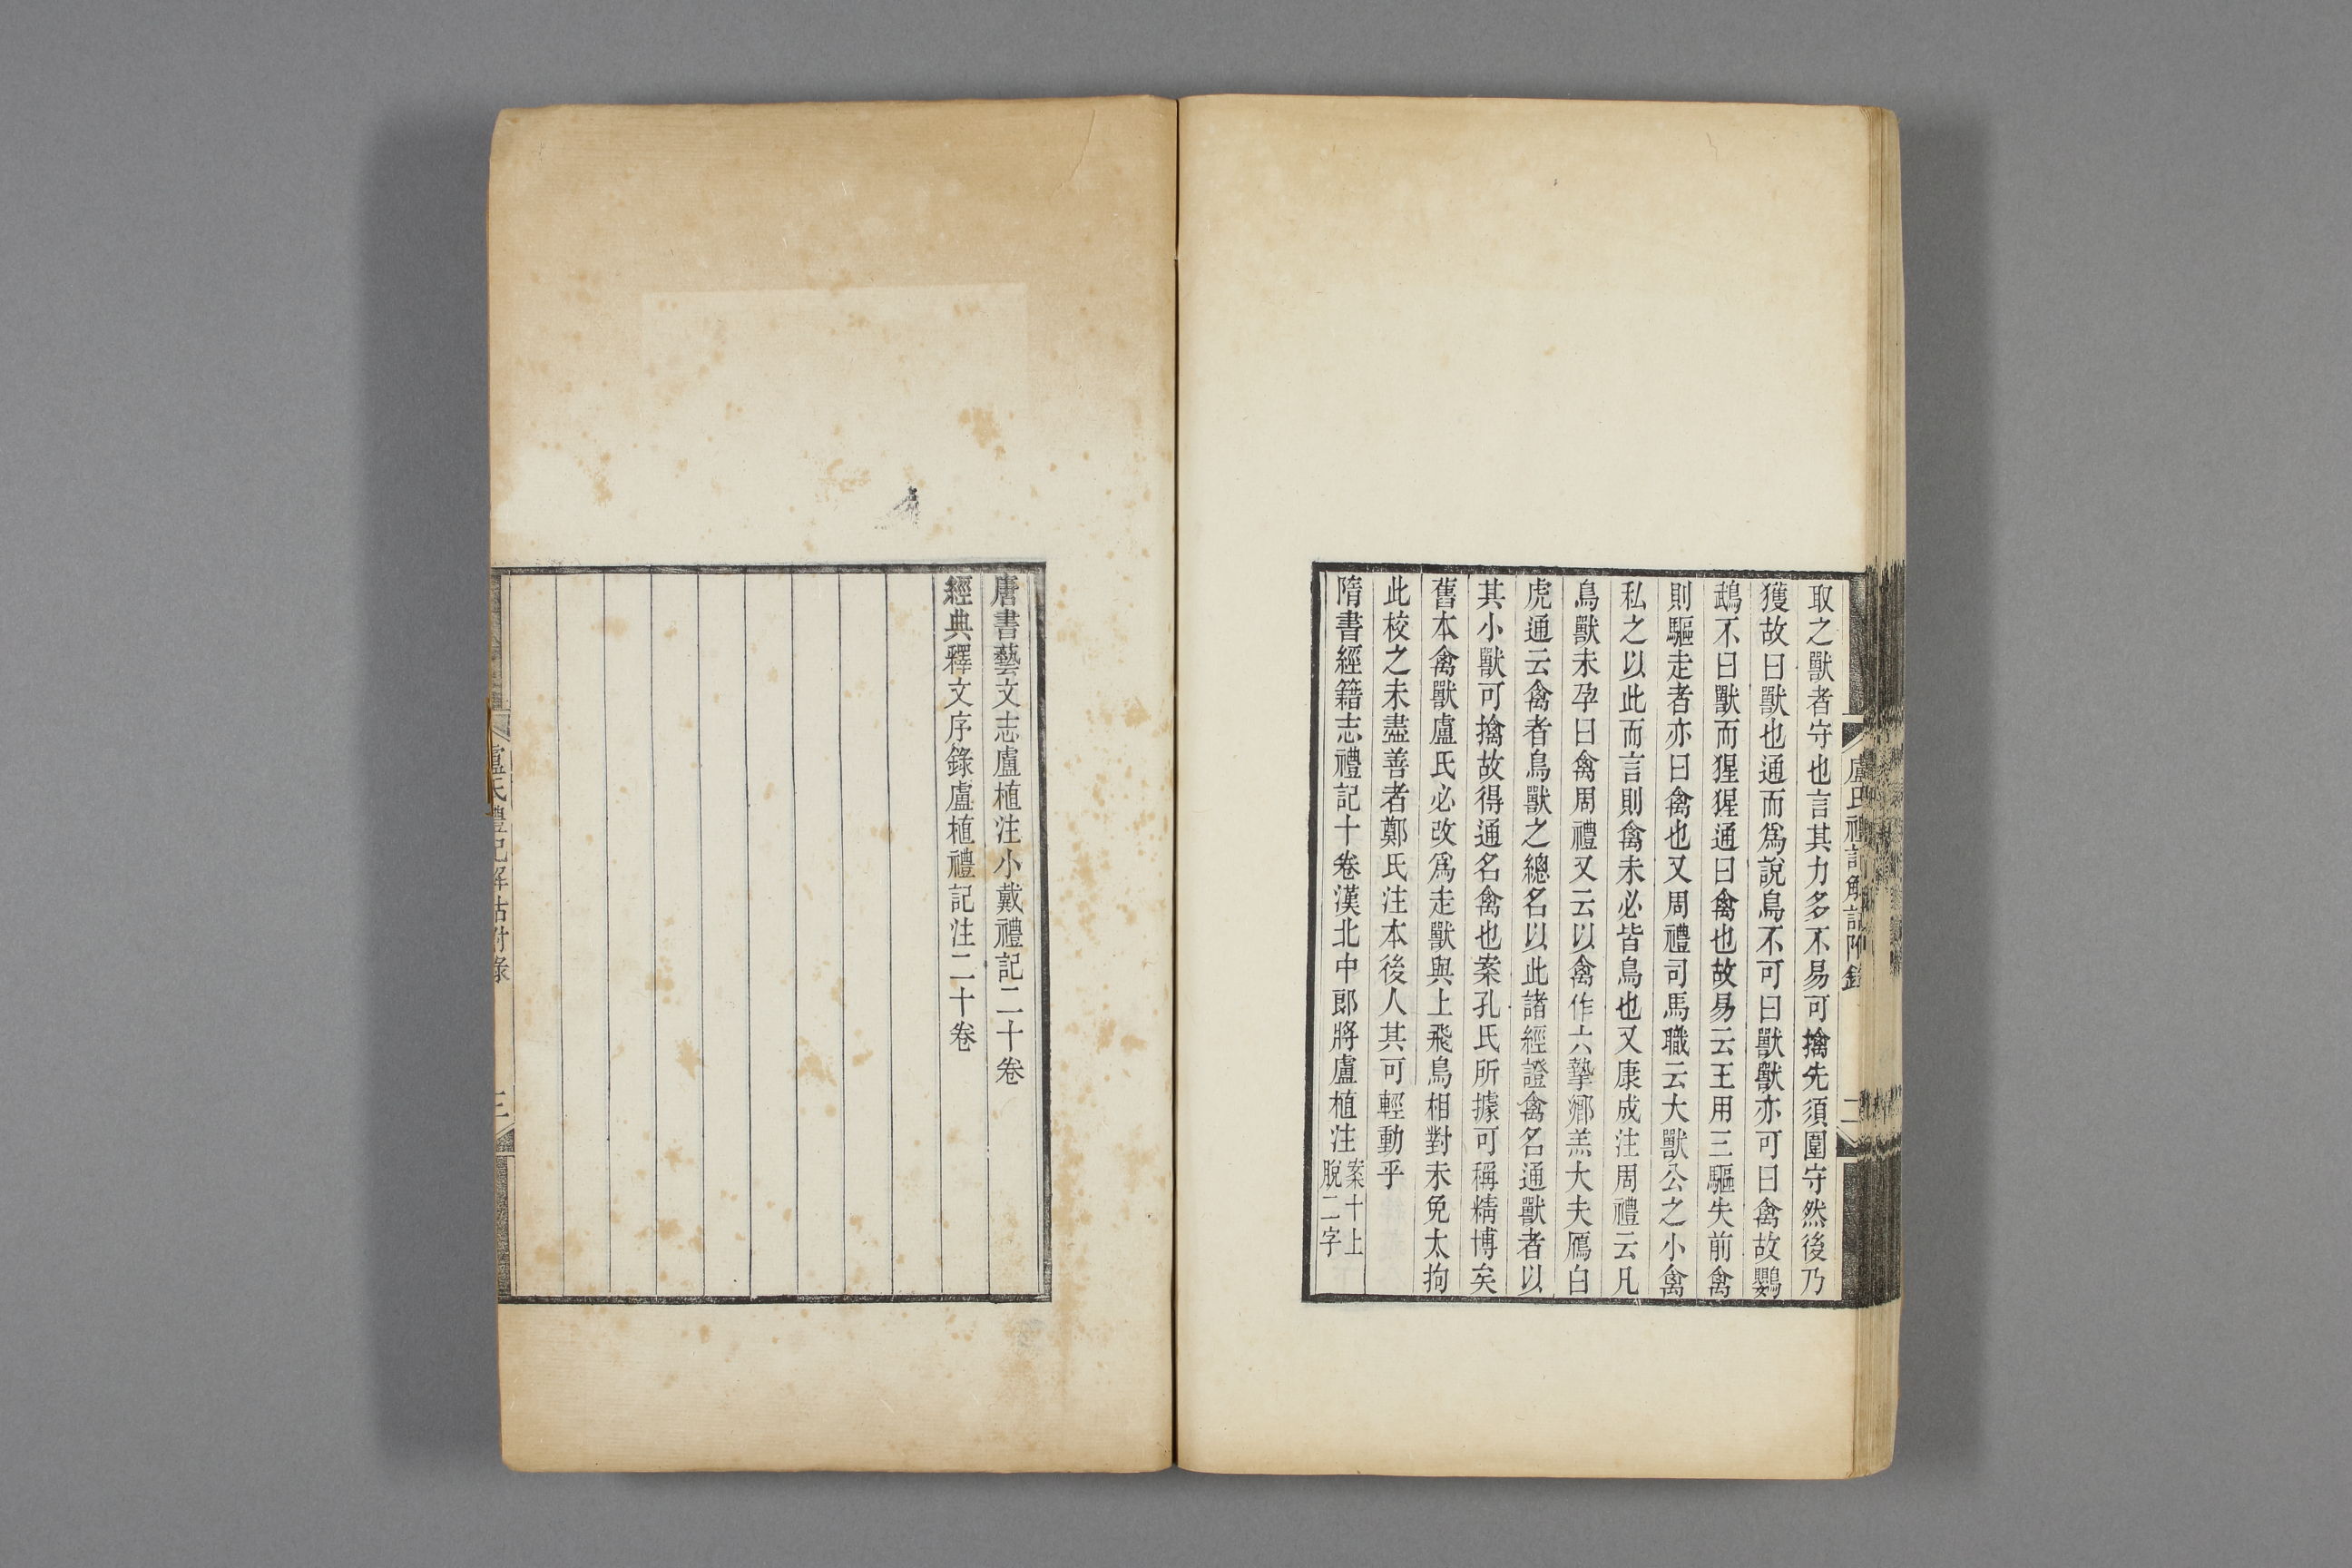 盧氏禮記解詁附錄
二
取之獸者守也言其力多不易可擒先須圍守然後乃
獲故曰獸也通而爲說鳥不可曰獸獸亦可曰禽故鸚
鵡不曰獸而猩猩通曰禽也故易云王用三驅失前禽
則驅走者亦曰禽也又周禮司馬職云大獸公之小禽
私之以此而言則禽未必皆鳥也又康成注周禮云凡
鳥獸未孕曰禽周禮又云以禽作六摯鄉羔大夫鴈白
虎通云禽者鳥獸之總名以此諸經證禽名通獸者以
其小獸可擒故得通名禽也案孔氏所據可稱精博矣
舊本禽獸盧氏必改爲走獸與上飛鳥相對未免太拘
此校之未盡善者鄭氏注本後人其可輕動乎
隋書經籍志禮記十卷漢北中郎將盧植注案十上脫二字
唐書藝文志盧植注小戴禮記二十卷
經典釋文序錄盧植禮記注二十卷
盧氏禮記解詁附錄
三